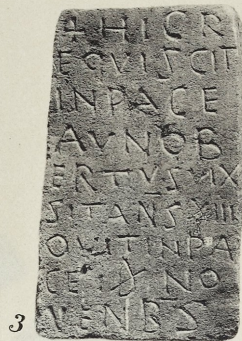 + HICR
EQVISCIT
INPACE
AVNOB
ERTVSVIX
SITANSXIII
INPA
CE NO
VENBS
3